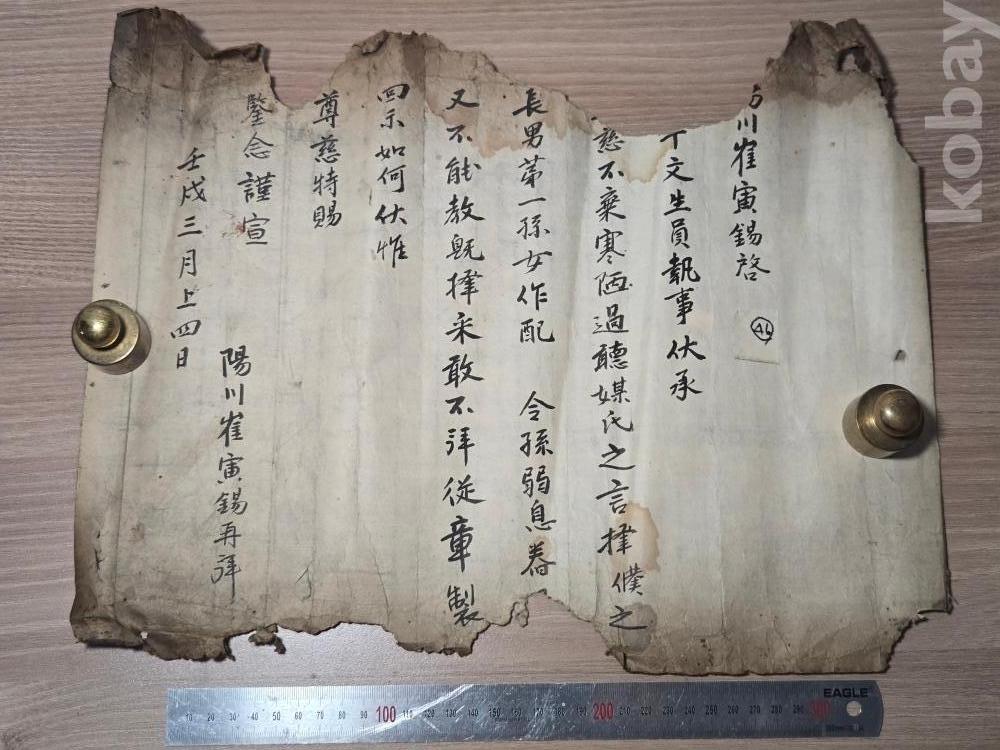 川崔寅錫啓
文生員執事伏承
慈不棄寒陋過聽媒氏之言擇僕之
長男苐一孫女作配 令孫弱息蠢
又不能教旣擇采敢不拜從章製
回示如何伏惟
尊慈特賜
鑒念謹宣
壬戌三月上四日
陽川崔寅錫再拜
AL
kobay
EAGLE
10 20 30 40 50 60 70 80 90 100 110 120 130 140 150 160 170 180 190 200 210 220 230 240 250 260 270 280 290 300